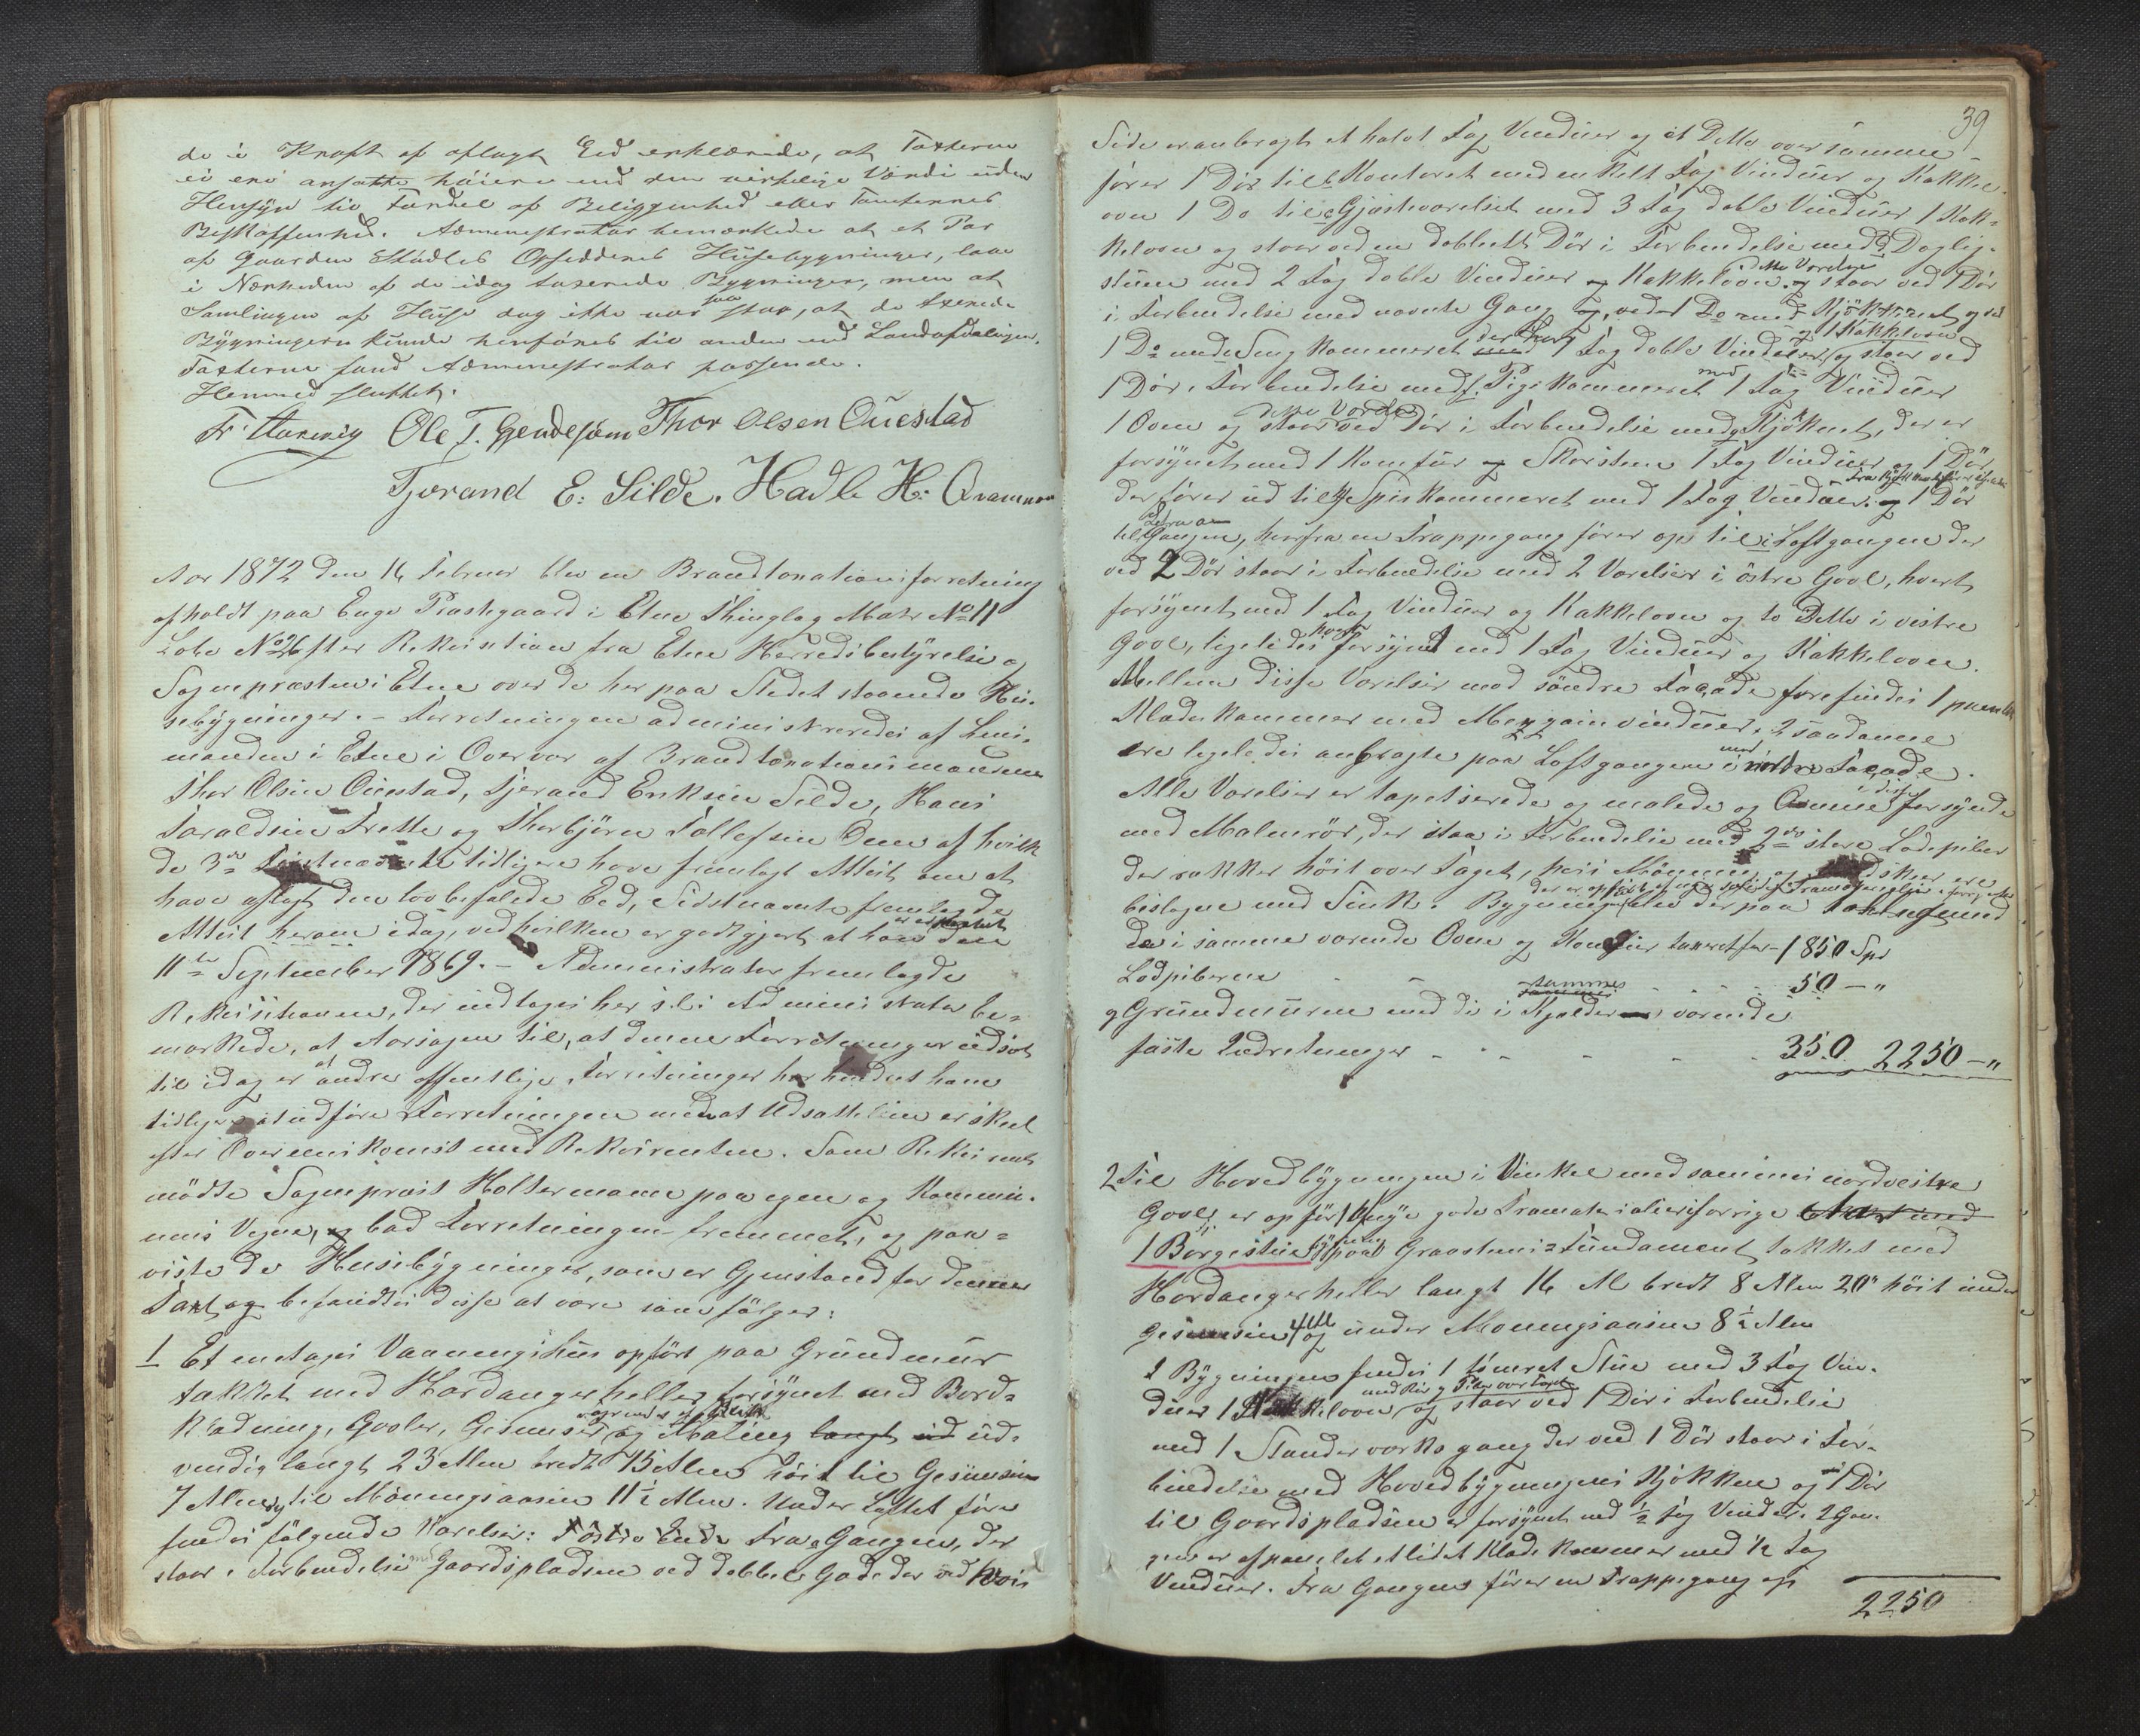 de i Kraft af aflagt Eed erklærede, at Taxterne
ei ere ansatte høiere end den virkelige Værdi uden
Hensyn til Fordel af Beliggenhed eller Tomternes
Beskaffenhed. Administrator bemærkede at et Par
af Gaarden Stødles Opsidderes Huusebygninger, laae
i Nærheden af de idag taxerede Bygninger, men at
Samlingen af Huse dog ikke var saa stor, at de taxerede
Bygningerne kunde henføres til anden end Landafdelingen.
Taxterne fand Administrator passende.
Hermed sluttet.
Ole T. Gjerdesøen Thor Olsen Østestad
Tjerand E: Silde. Hadle H: Qvamme
Aar 1872 den 16 Februar blev en Brandtaxationsforretning
afholdt paa Enge Præstegaard i Etne Thinglag Matr No 11
Løbe No 26 efter Rekvisition fra Etne Herredsbestyrelse og
Sognepræsten i Etne over de her paa Stedet staaende Hu-
sebygninger. – Forretningen administreredes af Lens-
manden i Etne i Overvær af Brandtaxationsmændene
Thor Olsen Østestad, Tjerand Eriksen Silde, Hans
Taraldsen Trette og Thorbjørn Tollefsen Øen af hvilke
de 3de tidligere have fremlagt Attest om at
have aflagt den lovbefalede Eed, Sidstnævnte fremlagde
Attest herom idag, ved hvilken er godtgjort at han den
11te September 1869. – Administrator fremlagde
Rekvisitionen, der indtages her s. l. i Administrator be-
mærkede, at Aarsagen til, at denne Forretning er udsat
til idag er at andre offentlige Forretninger har hindret ham
tidligere at udføre Forretningen men at Udsættelsen er skeet
efter Overenskomst med Rekvirenten. Som Rekvirent
mødte Sognepræst Holtermann paa egne og Kommu-
nens Vegne, og bad Forretningen fremmet, og paa-
viste de Husebygninger, som er Gjenstand for denne
Taxt og befandtes disse at være som følger:
1 Et enetages Vaaningshus opført paa Grundmur
takket med Hardangerheller forsynet med Bord-
klædning, Govler, Gesimser og Maling langt ud ud-
vendig langt 23 Alen bredt 15 Alen høit til Gesimsen
7 Alen og til Mønningsaasen 11½ Alen. Under Loftet fore-
findes følgende Værelser: I østre Ende Fra a Gangen, der
staar i Forbindelse med Gaardspladsen ved dobbel Gadedør ved hvis
39
Side er anbragt et halvt Fag Vinduer og et Ditto over samme
fører 1 Dør til b Kontoret med enkelt Fag Vinduer og Kakkel-
ovn 1 Do til c Gjæsteværelset med 3 Fag doble Vinduer 1 Kak-
kelovn og staar ved en doblett Dør i Forbindelse med d Daglig-
stuen med 2 Fag doble Vinduer og Kakkelovn. dette Værelse staar ved 1 Dør
i Forbindelse med nævnte Gang og ved 1 Do med Kjøkkenet og ved
1 Do med e Sengkammeret der har 1 Fag doble Vinduer og 1 Kakkelovn og staar ved
1 Dør i Forbindelse med f. Pigekammeret med 1 Fag Vinduer
1 Ovn og dette Værelse staar ved Dør i Forbindelse med g Kjøkkenet, der er
forsynet med 1 Komfur og Skorsten 1 Fag Vinduer og 1 Dør
der fører ud til h Spiskammeret med 1 Fag Vinduer. og 1 Dør
til Gangen, hvorfra en Trappegang fører op til i Loftgangen der
ved 2 Dør staar i Forbindelse med 2 Værelser i østre Govl, hvert
forsynet med 1 Fag Vinduer og Kakkelovn og to Ditto i vestre
Govl, ligeledes hvert forsynet med 1 Fag Vinduer og Kakkelovn.
Mellem disse Værelser mod søndre Façade forefindes 1 panelt
Klædekammer med Mezzaninvinduer, 2 saadanne
ere ligeledes anbragte paa Loftgangen mod nordre Façade.
Alle Værelser er tapetserede og malede og Ovnene disse forsynede
med Malmrør, der staa i Forbindelse med 2de store Ladepiber
der rækker høit over Taget, hvis Mønning og ere
beslagne med Zink. Bygningen blev der paa med
de i samme værende Ovne og Komfur taxeret for – 1850 Spd
Ladpiberne - - - 50 – "
og Grundmurene med de i Kjelderen værende
faste Indretninger - - - 350 2250 – "
2 Til Hovedbygningen i Vinkel med sammes nordvestre
Govl, er opført nye gode Træmaterialier iforrige
1 Borgestuebygning paa Graasteens Fundament takket med
Hardangerheller langt 16 Al bredt 8 Alen 20" høit under
Gesimsen 4 Al og under Mønningsaasen 8½ Alen
I Bygningen findes 1 tømret Stue med 3 Fag Vin-
duer 1 Kakkelovn med Rør og Piber over Taget og staar ved 1 Dør i Forbindelse
med 1 Standerværks gang der ved 1 Dør staar i For-
bindelse med Hovedbygningens Kjøkken og 1 Dør
til Gaardspladsen er forsynet med ½ Fag Vinduer. I Gan-
gen er afpanelet et lidet Klædekammer med ½ Fag
Vinduer. Fra Gangen fører en Trappegang op
2250